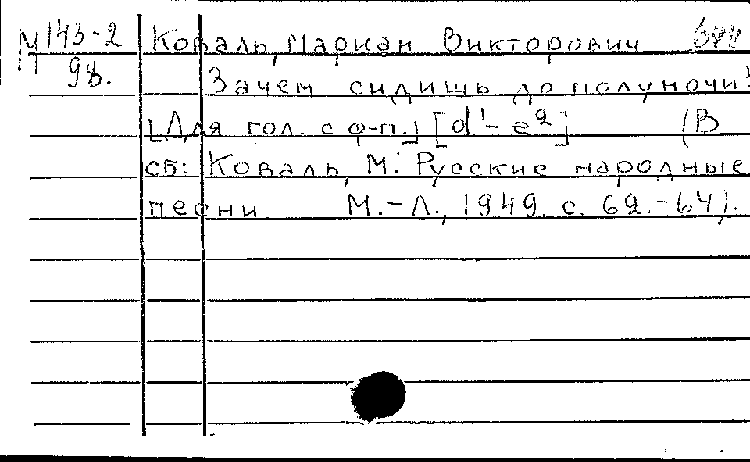 М 143-2 Коваль, Мариан Викторович
98. Зачем сидишь до полуночи?
[Для гол. с ф-п.] [d¹- e²] (В
сб: Коваль, М. Русские народные
песни. М.-Л., 1949. с. 62.-64).